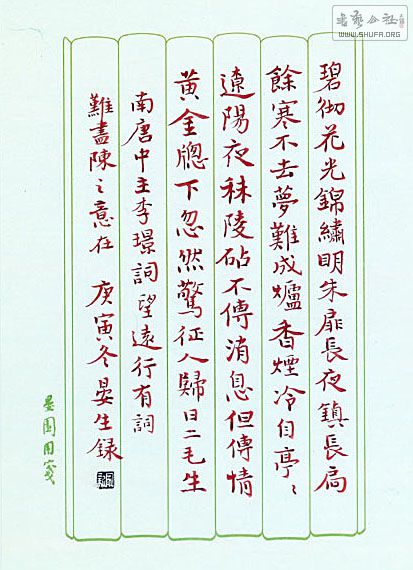 碧砌花光錦繡明朱扉長夜鎮長扃
餘寒不去夢難成爐香煙冷自亭〻
遼陽夜秣陵砧不傳消息但傳情
黃金牕下忽然驚征人歸日二毛生
南唐中主李璟詞望遠行有詞
難盡陳之意在 庚寅冬晏生録
墨園用箋
書藝公社
WWW.SHUFA.ORG